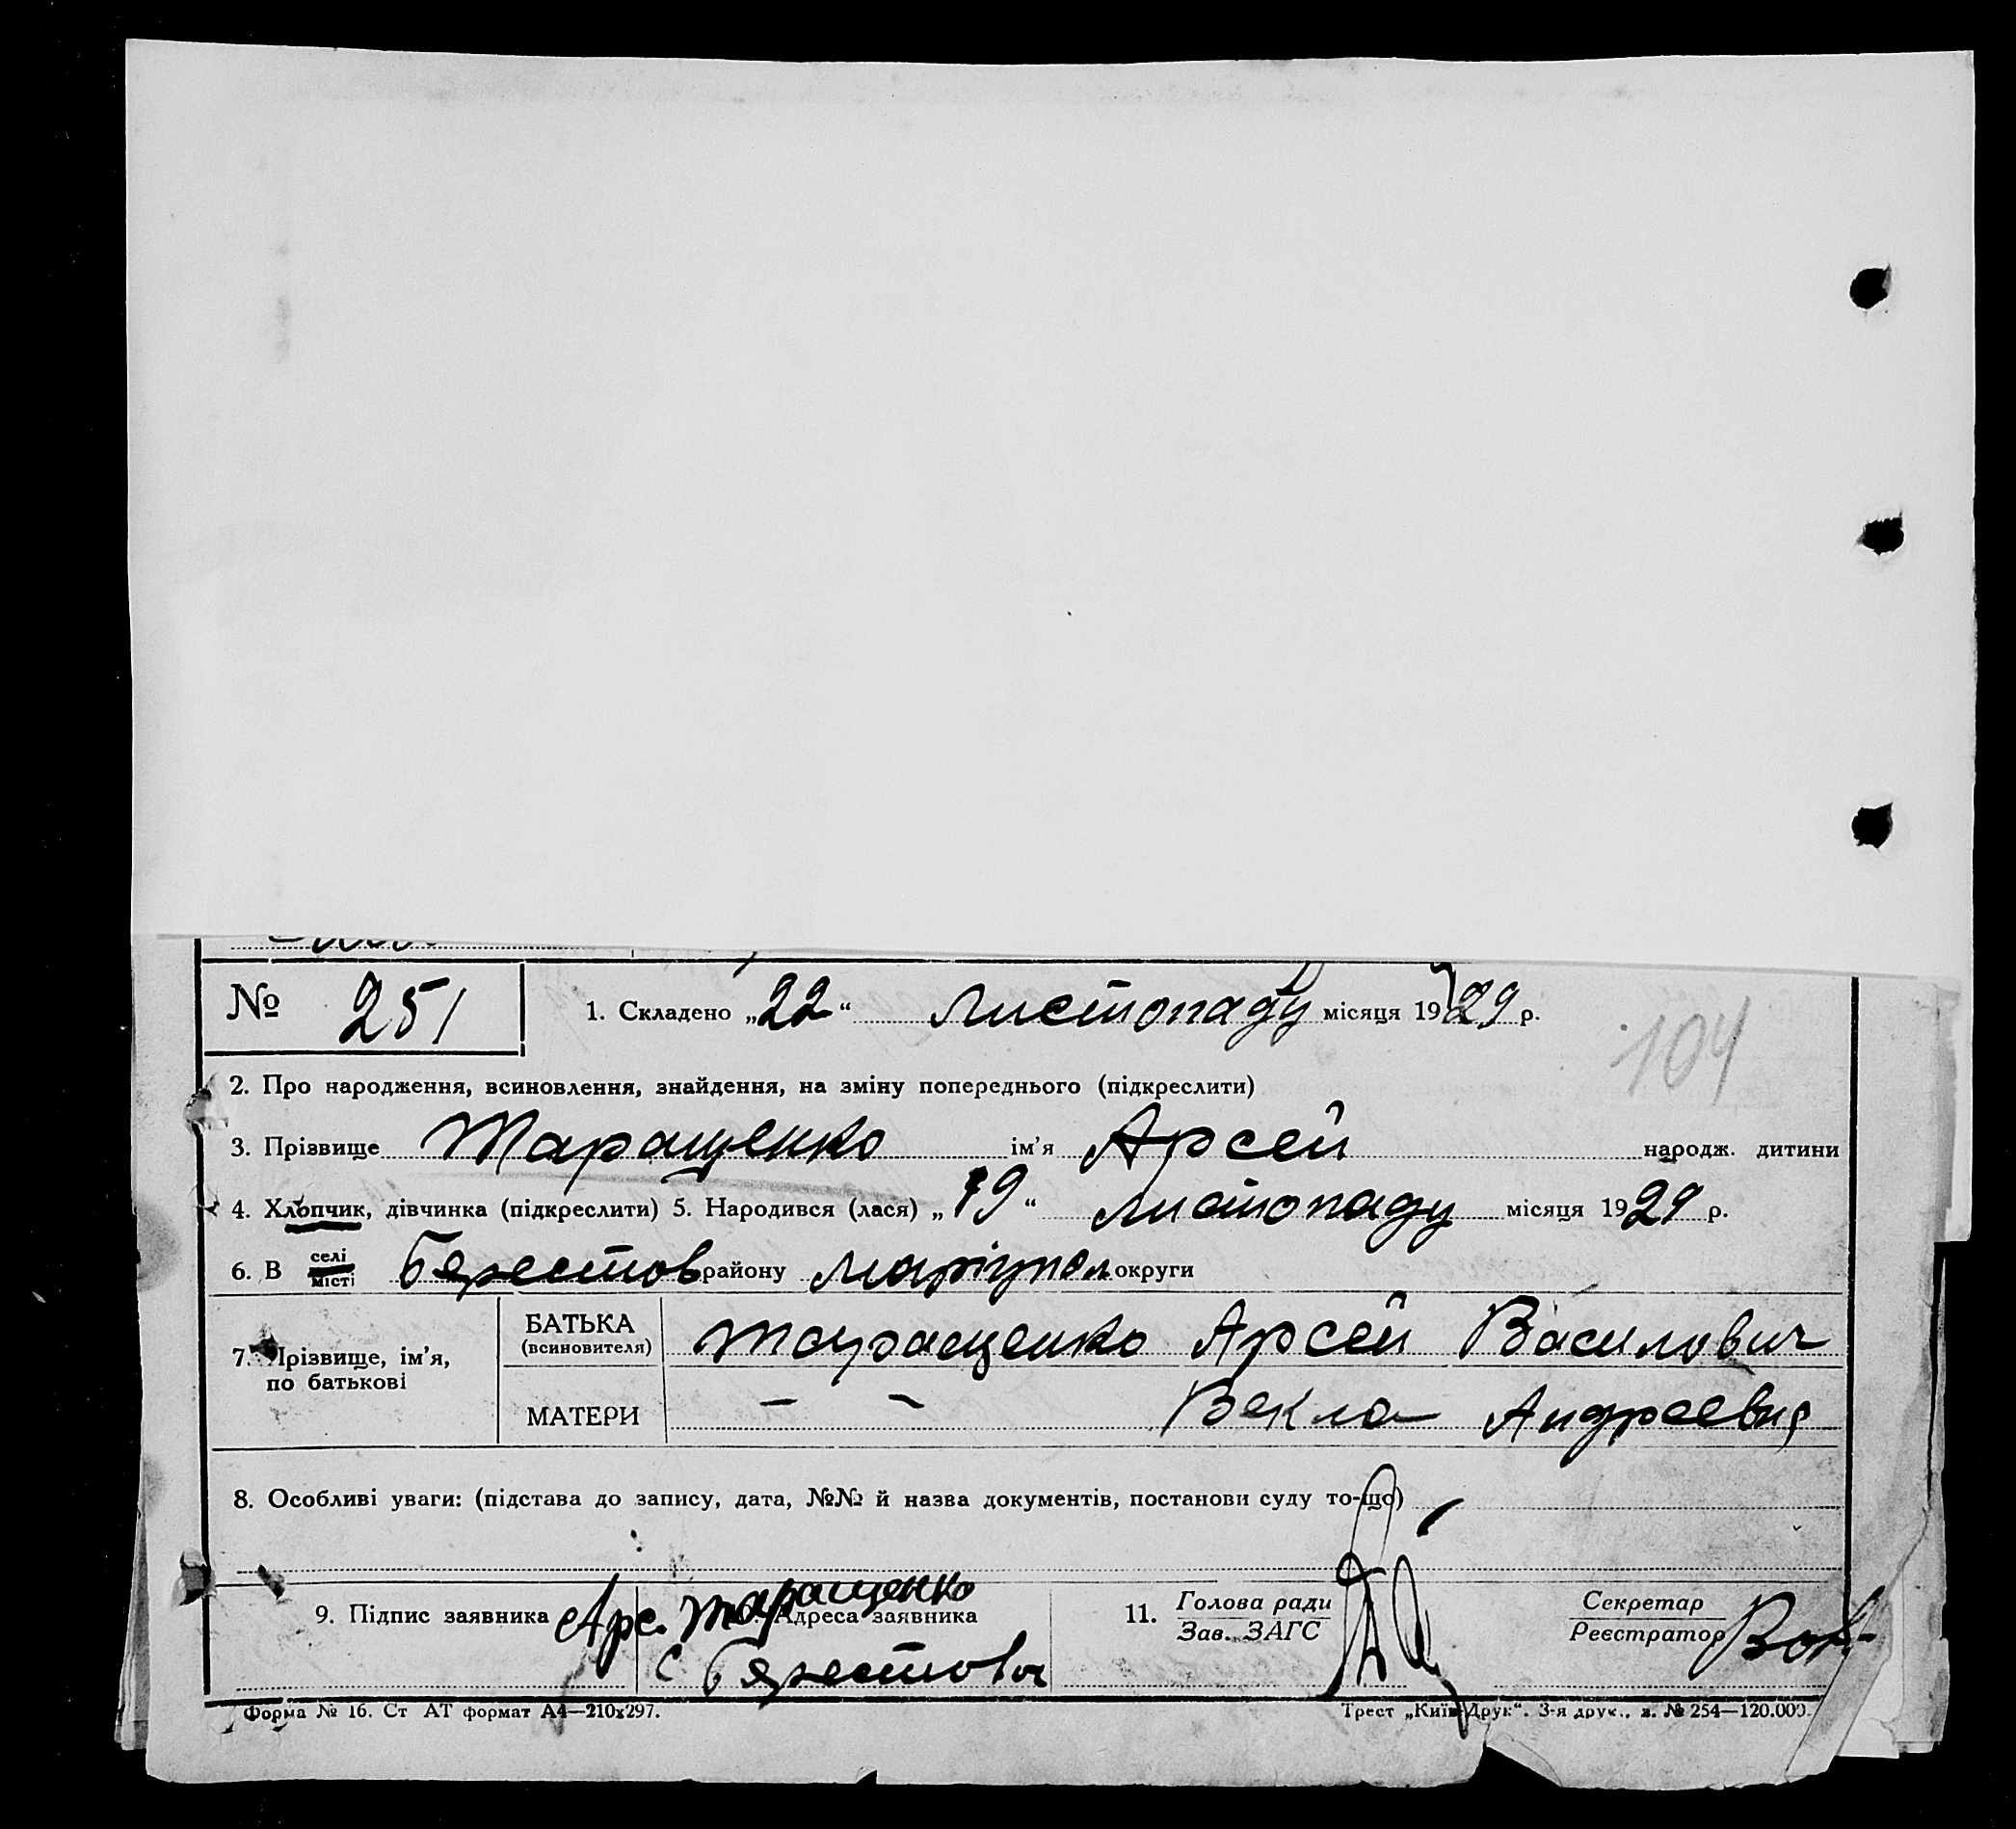 № 251
1. Складено „22“ Листопаду місяця 1929 р.
104
2. Про народження, всиновлення, знайдення, на зміну попереднього (підкреслити)
3. Прізвище Таращенко ім’я Арсей народж. дитини
4. Хлопчик, дівчинка (підкреслити) 5. Народився (лася) „19“ листопаду місяця 1929 р.
6. В селі місті Берестов району Маріупол округи
7. Прізвище, ім’я, по батькові
БАТЬКА (всиновителя) Таращенко Арсей Василович
МАТЕРИ – – Векла Андреевна
8. Особливі уваги: (підстава до запису, дата, №№ й назва документів, постанови суду то-що)
9. Підпис заявника Арс. Таращенко
Адреса заявника
с Берестова
11. Голова ради
Зав. ЗАГС
Секретар
Реєстратор
Форма № 16. Ст АТ формат А4—210х297.
Трест „Київ-Друк“. 3-я друк., з. № 254—120.000.